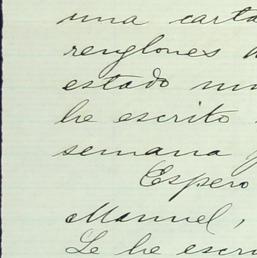 una carta
renglones
estado mu
he escrito
semana
Espero
Manuel,
Le he escri